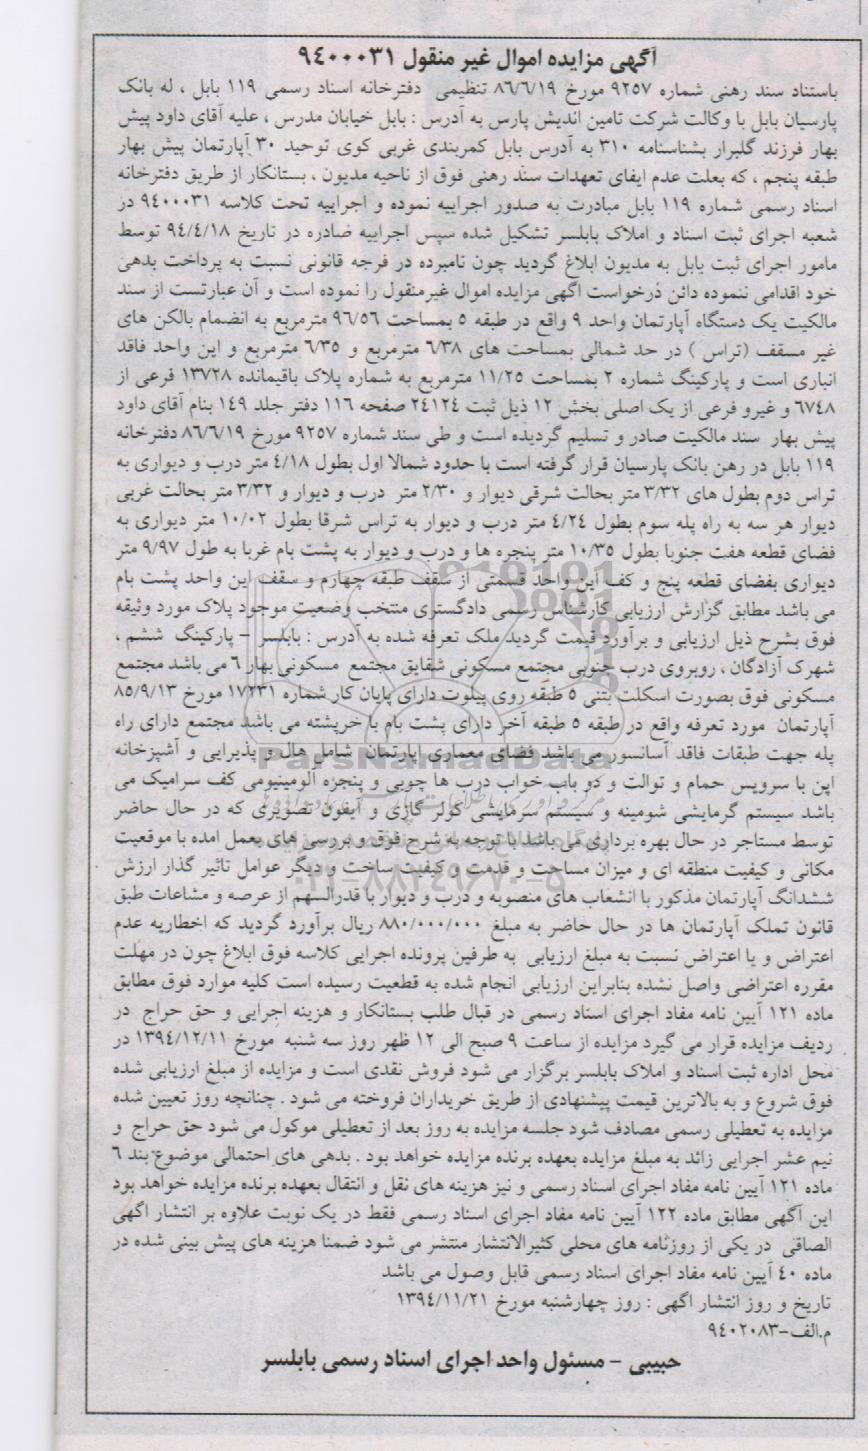 آگهی مزایده اموال غیر منقول ٩٤٠٠٠٣١
باستناد سند رهنی شماره ٩٢٥٧ مورخ ٨٦/٦/١٩ تنظیمی دفترخانه اسناد رسمی ١١٩ بابل ، له بانک
پارسیان بابل با وکالت شرکت تامین اندیش پارس به آدرس : بابل خیابان مدرس ، علیه آقای داود پیش
بهار فرزند گلبرار بشناسنامه ٣١٠ به آدرس بابل کمربندی غربی کوی توحید ٣٠ آپارتمان پیش بهار
طبقه پنجم ، که بعلت عدم ایفای تعهدات سند رهنی فوق از ناحیه مدیون ، بستانکار از طریق دفترخانه
اسناد رسمی شماره ١١٩ بابل مبادرت به صدور اجراییه نموده و اجراییه تحت کلاسه ٩٤٠٠٠٣١ در
شعبه اجرای ثبت اسناد و املاک بابلسر تشکیل شده سپس اجراییه صادره در تاریخ ٩٤/٤/١٨ توسط
مامور اجرای ثبت بابل به مدیون ابلاغ گردید چون نامبرده در فرجه قانونی نسبت به پرداخت بدهی
خود اقدامی ننموده دائن درخواست اگهی مزایده اموال غیرمنقول را نموده است و آن عبارتست از سند
مالکیت یک دستگاه آپارتمان واحد ٩ واقع در طبقه ٥ بمساحت ٩٦/٥٦ مترمربع به انضمام بالکن های
غیر مسقف (تراس ) در حد شمالی بمساحت های ٦/٣٨ مترمربع و ٦/٣٥ مترمربع و این واحد فاقد
انباری است و پارکینگ شماره ٢ بمساحت ١١/٢٥ مترمربع به شماره پلاک باقیمانده ١٣٧٢٨ فرعی از
٦٧٤٨ و غیرو فرعی از یک اصلی بخش ١٢ ذیل ثبت ٢٤١٢٤ صفحه ١١٦ دفتر جلد ١٤٩ بنام آقای داود
پیش بهار سند مالکیت صادر و تسلیم گردیده است و طی سند شماره ٩٢٥٧ مورخ ٨٦/٦/١٩ دفترخانه
١١٩ بابل در رهن بانک پارسیان قرار گرفته است با حدود شمالا اول بطول ٤/١٨ متر درب و دیواری به
تراس دوم بطول های ٣/٣٢ متر بحالت شرقی دیوار و ٢/٣٠ متر درب و دیوار و ٣/٣٢ متر بحالت غربی
دیوار هر سه به راه پله سوم بطول ٤/٢٤ متر درب و دیوار به تراس شرقا بطول ١٠/٠٢ متر دیواری به
فضای قطعه هفت جنوبا بطول ١٠/٣٥ متر پنجره ها و درب و دیوار به پشت بام غربا به طول ٩/٩٧ متر
دیواری بفضای قطعه پنج و کف این واحد قسمتی از سقف طبقه چهارم و سقف این واحد پشت بام
می باشد مطابق گزارش ارزیابی کارشناس رسمی دادگستری منتخب وضعیت موجود پلاک مورد وثیقه
فوق بشرح ذیل ارزیابی و برآورد قیمت گردید ملک تعرفه شده به آدرس : بابلسر – پارکینگ ششم ،
شهرک آزادگان ، روبروی درب جنوبی مجتمع مسکونی شقایق مجتمع مسکونی بهار ٦ می باشد مجتمع
مسکونی فوق بصورت اسکلت بتنی ٥ طبقه روی پیلوت دارای پایان کار شماره ١٧٢٣١ مورخ ٨٥/٩/١٣
آپارتمان مورد تعرفه واقع در طبقه ٥ طبقه آخر دارای پشت بام با خرپشته می باشد مجتمع دارای راه
پله جهت طبقات فاقد آسانسور می باشد فضای معماری آپارتمان شامل هال و پذیرایی و آشپزخانه
اپن با سرویس حمام و توالت و دو باب خواب درب ها چوبی و پنجره آلومینیومی کف سرامیک می
باشد سیستم گرمایشی شومینه و سیستم سرمایشی کولر گازی و آیفون تصویری که در حال حاضر
توسط مستاجر در حال بهره برداری می باشد با توجه به شرح فوق و بررسی های بعمل امده با موقعیت
مکانی و کیفیت منطقه ای و میزان مساحت و قدمت و کیفیت ساخت و دیگر عوامل تاثیر گذار ارزش
ششدانگ آپارتمان مذکور با انشعاب های منصوبه و درب و دیوار با قدرالسهم از عرصه و مشاعات طبق
قانون تملک آپارتمان ها در حال حاضر به مبلغ ٨٨٠/٠٠٠/٠٠٠ ریال برآورد گردید که اخطاریه عدم
اعتراض و یا اعتراض نسبت به مبلغ ارزیابی به طرفین پرونده اجرایی کلاسه فوق ابلاغ چون در مهلت
مقرره اعتراضی واصل نشده بنابراین ارزیابی انجام شده به قطعیت رسیده است کلیه موارد فوق مطابق
ماده ١٢١ آیین نامه مفاد اجرای اسناد رسمی در قبال طلب بستانکار و هزینه اجرایی و حق حراج در
ردیف مزایده قرار می گیرد مزایده از ساعت ٩ صبح الی ١٢ ظهر روز سه شنبه مورخ ١٣٩٤/١٢/١١ در
محل اداره ثبت اسناد و املاک بابلسر برگزار می شود فروش نقدی است و مزایده از مبلغ ارزیابی شده
فوق شروع و به بالاترین قیمت پیشنهادی از طریق خریداران فروخته می شود . چنانچه روز تعیین شده
مزایده به تعطیلی رسمی مصادف شود جلسه مزایده به روز بعد از تعطیلی موکول می شود حق حراج و
نیم عشر اجرایی زائد به مبلغ مزایده بعهده برنده مزایده خواهد بود . بدهی های احتمالی موضوع بند ٦
ماده ١٢١ آیین نامه مفاد اجرای اسناد رسمی و نیز هزینه های نقل و انتقال بعهده برنده مزایده خواهد بود
این آگهی مطابق ماده ١٢٢ آیین نامه مفاد اجرای اسناد رسمی فقط در یک نوبت علاوه بر انتشار اگهی
الصاقی در یکی از روزنامه های محلی کثیرالانتشار منتشر می شود ضمنا هزینه های پیش بینی شده در
ماده ٤٠ آیین نامه مفاد اجرای اسناد رسمی قابل وصول می باشد
تاریخ و روز انتشار اگهی : روز چهارشنبه مورخ ١٣٩٤/١١/٢١
م.الف-٩٤٠٢٠٨٣
حبیبی – مسئول واحد اجرای اسناد رسمی بابلسر
ParsNamadData
٠٢١-٨٨٣٤٩٦٧٠-٥